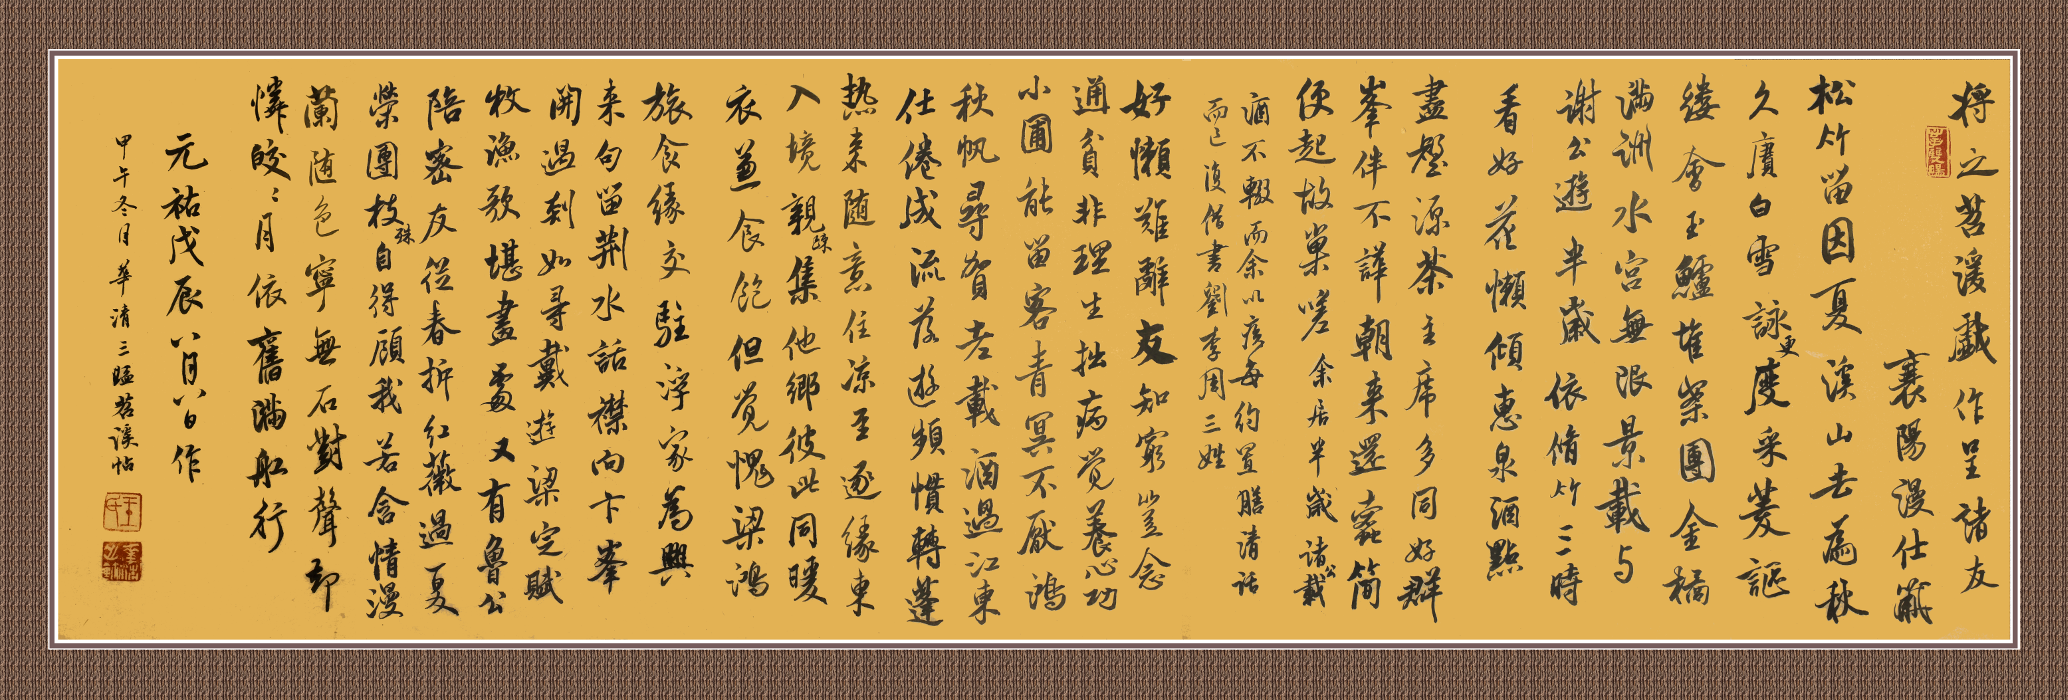 将之苕溪戲作呈諸友
襄陽漫仕黻
松竹留因夏溪山去為秋
久賡白雪詠更度采菱謳
縷會玉鱸堆案團金橘
滿洲水宮無限景載与
謝公遊半歲依脩竹三時
看好花懶傾惠泉酒點
盡壑源茶主席多同好群
峯伴不譁朝来還蠹簡
便起故巢嗟余居半歲諸公載
酒不輟而余以疾每約置膳清話
而已復借書劉李周三姓
好懶難辭友知窮豈念
通貧非理生拙病覺養心功
小圃能留客青冥不厭鴻
秋帆尋賀老載酒過江東
仕倦成流落遊頻慣轉蓬
热来隨意住凉至逐緣東
入境親疎集他鄉彼此同暖
衣兼食飽但覺愧梁鴻
旅食緣交駐浮家為興
来句留荆水話襟向卞峯
開過剡如尋戴遊梁定賦
牧漁歌堪畫處又有魯公
陪密友從春折紅薇過夏
榮團枝殊自得顧我若含情漫
蘭随色寧無石對聲却
憐皎〻月依舊滿舡行
元祐戊辰八月八日作
甲午冬月華清三猛苕溪帖